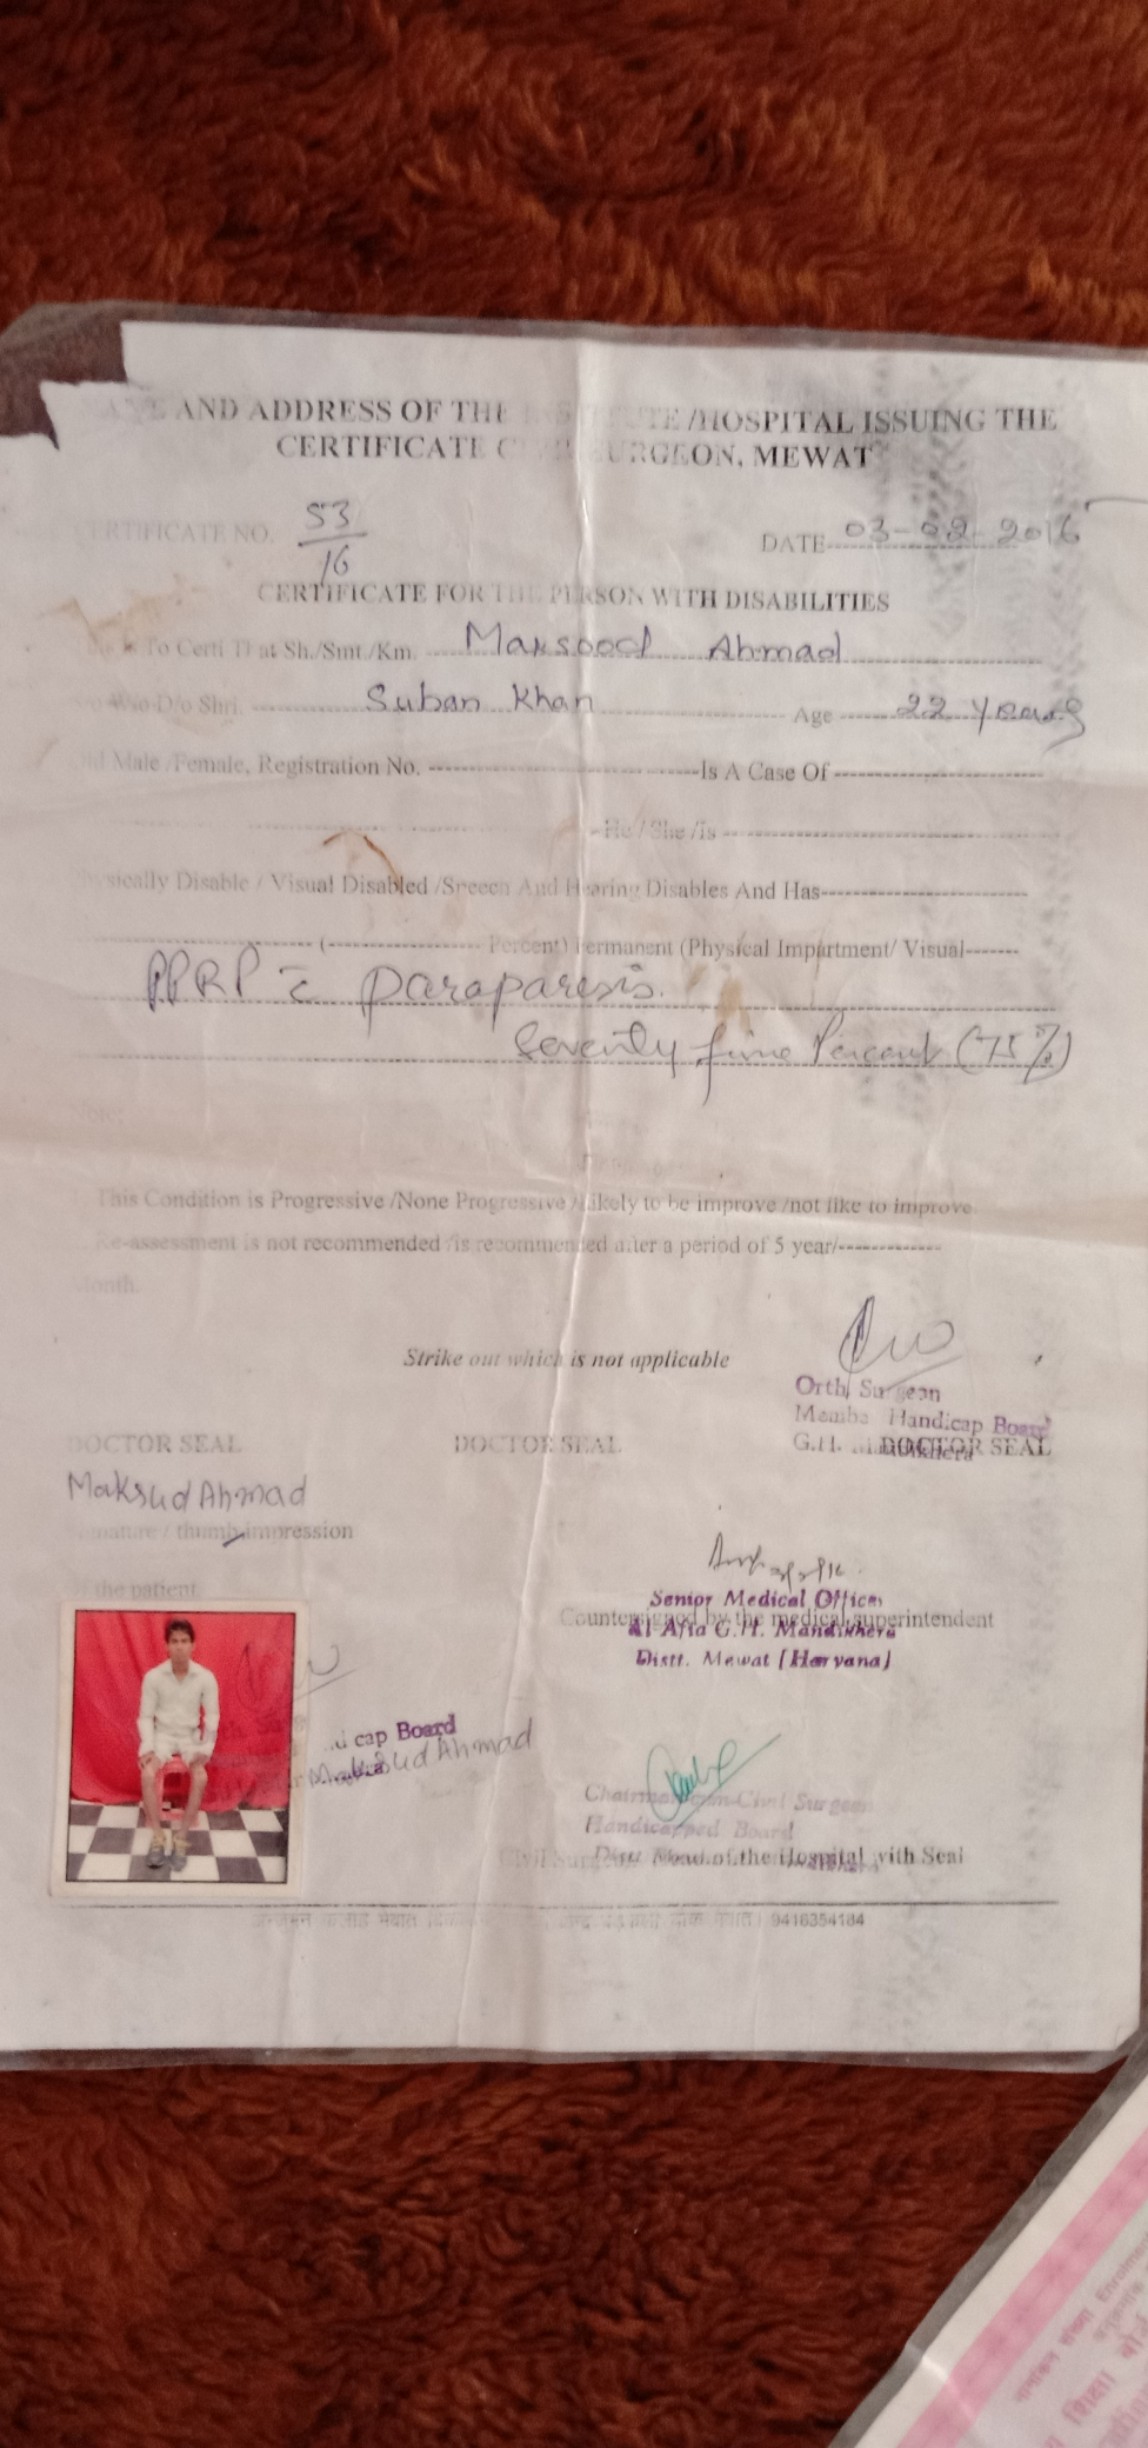 AND ADDRESS OF THE INSTITUTE /HOSPITAL ISSUING THE
CERTIFICATE SURGEON, MEWAT
CERTIFICATE NO. 53/16
DATE 03-02-2016
CERTIFICATE FOR THE PERSON WITH DISABILITIES
To Certi That Sh./Smt./Km. Maksood Ahmad
W/o D/o Shri. Suban Khan Age 22 years
Old Male /Female, Registration No. Is A Case Of
He / She /Is
Physically Disable / Visual Disabled /Speech And Hearing Disables And Has
( Percent) Permanent (Physical Impartment/ Visual
PPRP c̄ paraparesis.
Seventy five Percent (75%)
Note:
This Condition is Progressive /None Progressive / Likely to be improve /not like to improve.
Re-assessment is not recommended /is recommended after a period of 5 year/
Month.
Strike out which is not applicable
Orth. Surgeon
Member Handicap Board
G.H.
DOCTOR SEAL DOCTOR SEAL DOCTOR SEAL
Maksud Ahmad
Signature / thumb impression
the patient
Senior Medical Officer
Countersigned by the medical superintendent
Al Afia G.H. Mandikhera
Distt. Mewat (Haryana)
cap Board
Maksud Ahmad
Chairman-cum-Civil Surgeon
Handicapped Board
Civil Surgeon Head of the Hospital with Seal
9416354184